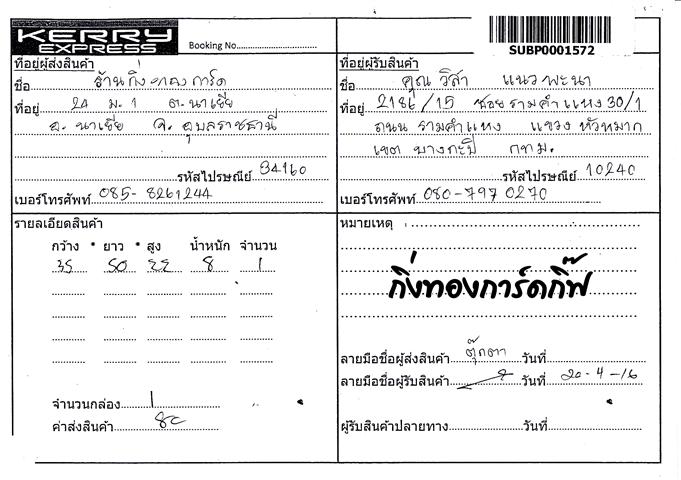 KERRY
EXPRESS
Booking No.
SUBP0001572
ที่อยู่ผู้ส่งสินค้า
ชื่อ ร้านกิ่งทองการ์ด
ที่อยู่ 24 ม.1 ต.นาเยีย
อ. นาเยีย จ. อุบลราชธานี
รหัสไปรษณีย์ 34160
เบอร์โทรศัพท์ 085-8261244
ที่อยู่ผู้รับสินค้า
ชื่อ คุณ วิสา แนวพะนา
ที่อยู่ 2186/15 ซอยรามคำแหง 30/1
ถนน รามคำแหง แขวง หัวหมาก
เขต บางกะปิ กทม.
รหัสไปรษณีย์ 10240
เบอร์โทรศัพท์ 080-797 0270
รายละเอียดสินค้า
กว้าง * ยาว * สูง น้ำหนัก จำนวน
35 50 22 8 1
จำนวนกล่อง 1
ค่าส่งสินค้า 80
หมายเหตุ
กิ่งทองการ์ดกิ๊ฟ
ลายมือชื่อผู้ส่งสินค้า ตุ๊กตา วันที่
ลายมือชื่อผู้รับสินค้า วันที่ 20-4-16
ผู้รับสินค้าปลายทาง วันที่